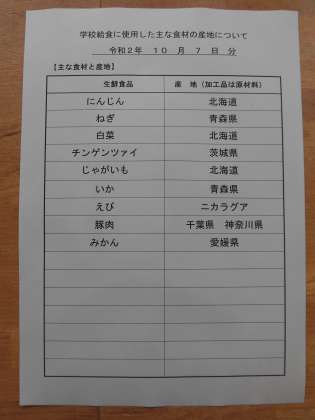 学校給食に使用した主な食材の産地について
令和2年 10 月 7 日 分
【主な食材と産地】
生鮮食品 産 地（加工品は原材料）
にんじん 北海道
ねぎ 青森県
白菜 北海道
チンゲンツァイ 茨城県
じゃがいも 北海道
いか 青森県
えび ニカラグア
豚肉 千葉県 神奈川県
みかん 愛媛県